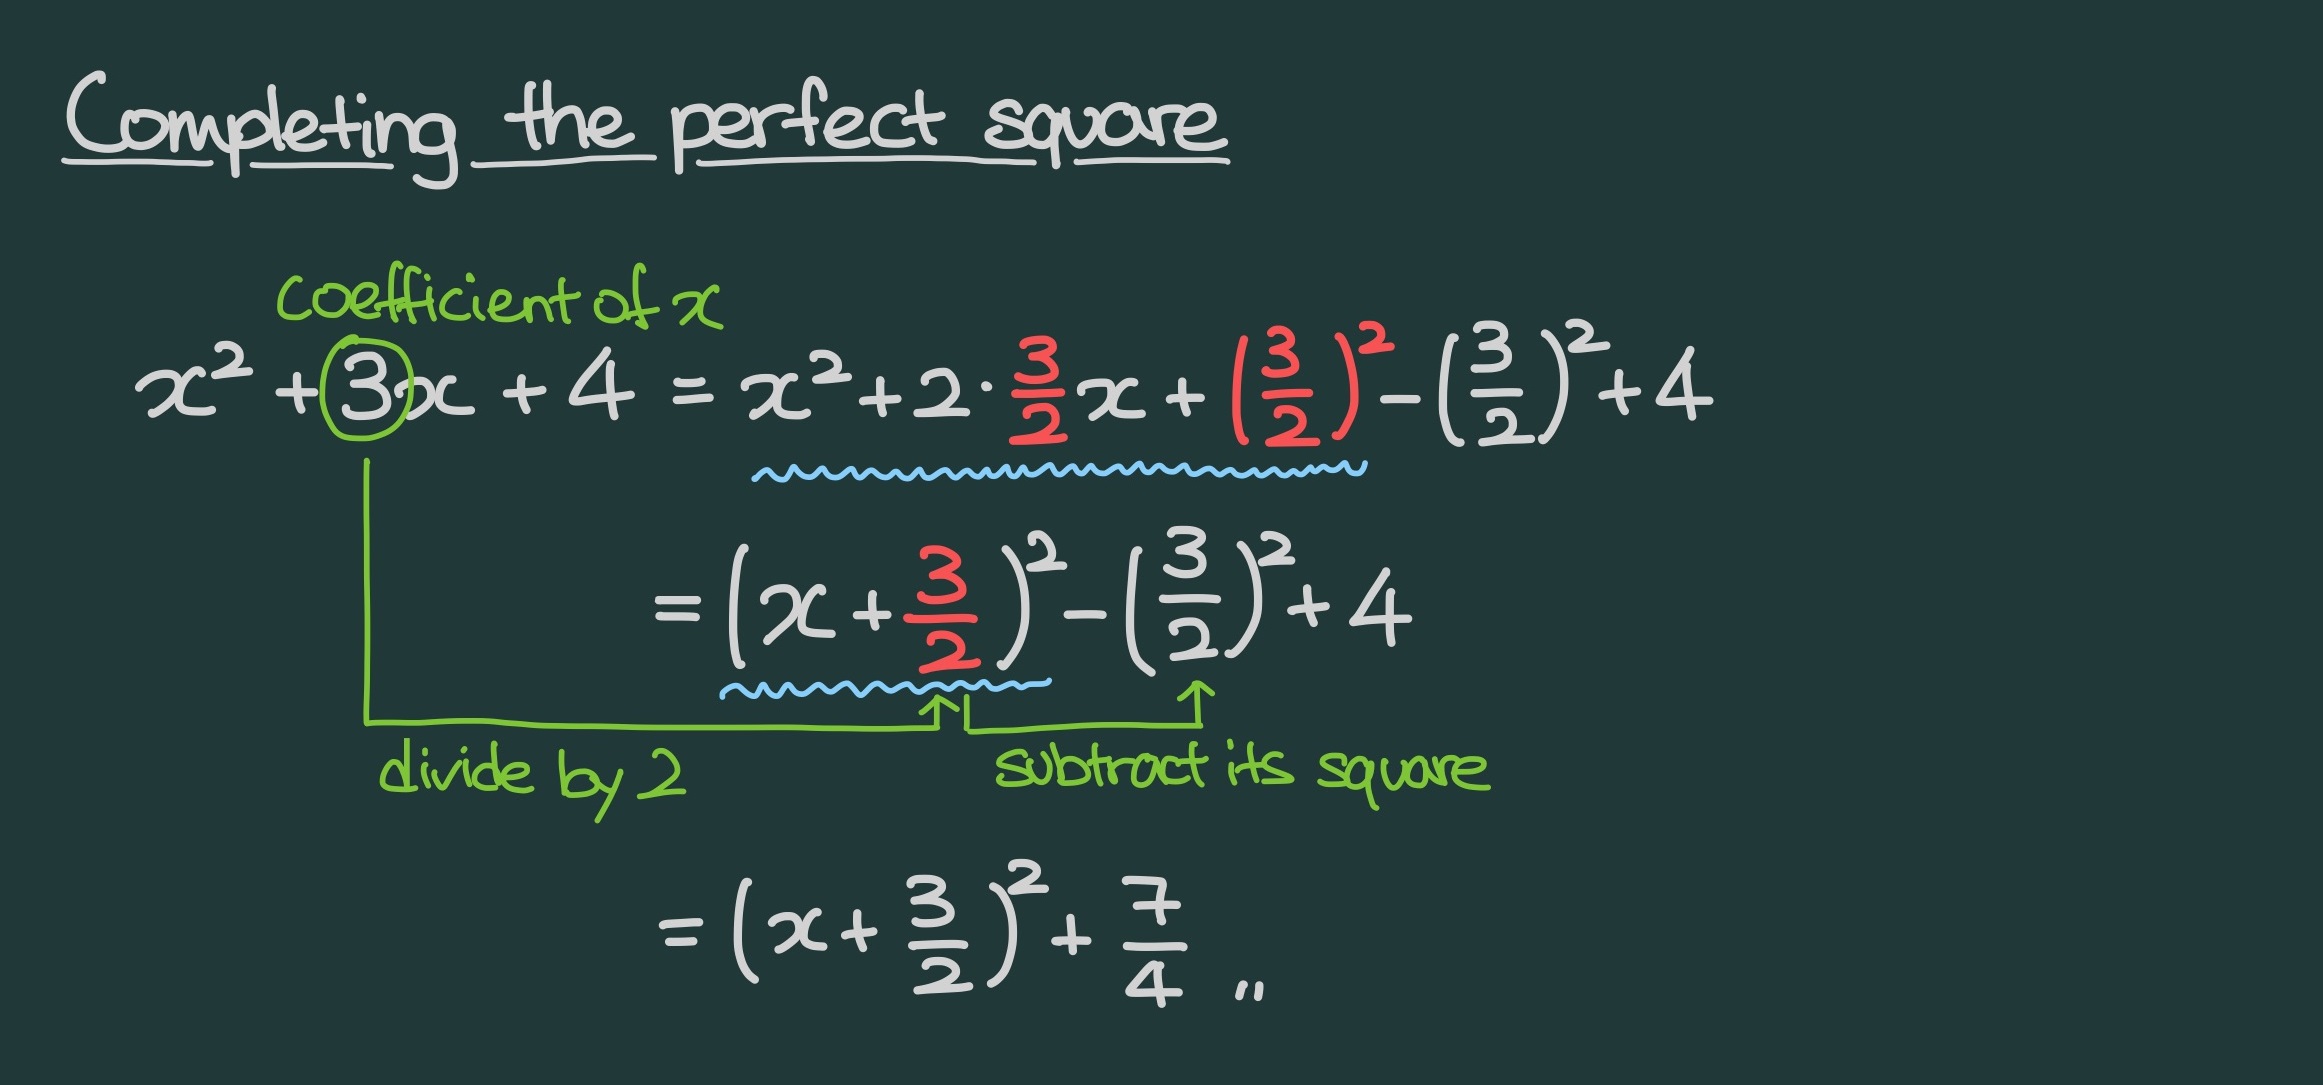 Completing the perfect square
coefficient of x
x² + 3x + 4 = x² + 2 · 3/2 x + (3/2)² - (3/2)² + 4
= (x + 3/2)² - (3/2)² + 4
divide by 2 subtract its square
= (x + 3/2)² + 7/4 〃